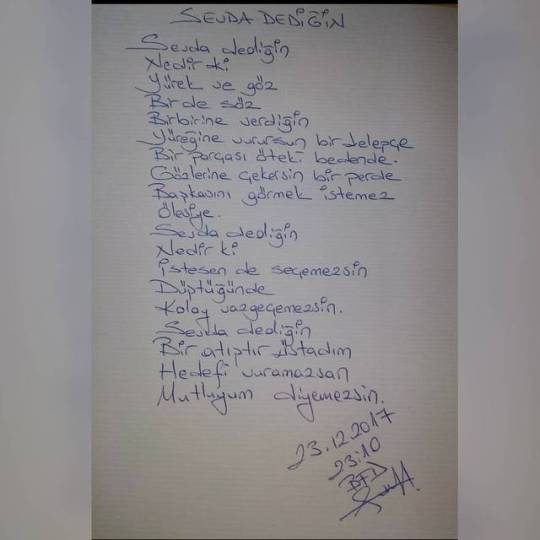 SEVDA DEDİĞİN
Sevda dediğin
Nedir ki
Yürek ve göz
Bir de söz
Birbirine verdiğin
Yüreğine vurursun bir kelepçe
Bir parçası öteki bedende.
Gözlerine çekersin bir perde
Başkasını görmek istemez
Ölesiye.
Sevda dediğin
Nedir ki
İstesen de seçemezsin
Düştüğünde
Kolay vazgeçemezsin.
Sevda dediğin
Bir atıştır üstadım
Hedefi vuramazsan
Mutluyum diyemezsin.
23.12.2017
23:10